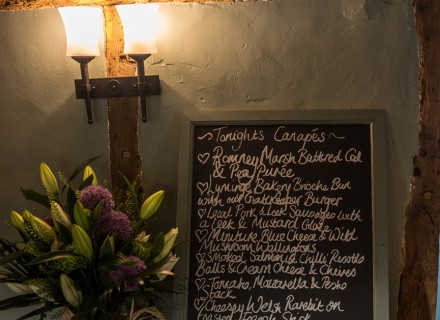 ~ Tonights Canapés ~
♡ Romney Marsh Battered Cod
& Pea Purée
♡ Lyminge Bakery Broche Bun
with our Gatekeeper Burger
♡ Local Pork & Leek Sausages with
a Leek & Mustard Glaze
♡ Minuture Blue Cheese & Wild
Mushroom Wellingtons
♡ Smoked Salmon & Chilli Risotto
Balls & Cream Cheese & Chives
♡ Tomato, Mozzarella & Pesto
♡ Cheesey Welsh Rarebit on
Toasted French Stick